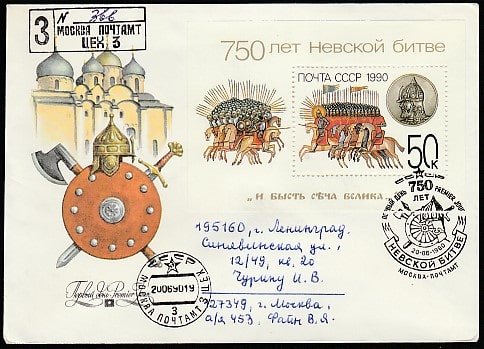 3
N 366
МОСКВА ПОЧТАМТ
ЦЕХ 3
750 лет Невской битве
ПОЧТА СССР 1990
50к
„и бысть сѣча велика...
ПЕРВЫЙ ДЕНЬ PREMIER JOUR
750
ЛЕТ
20-06-1990
НЕВСКОЙ БИТВЕ
МОСКВА-ПОЧТАМТ
195160, г. Ленинград,
Синявинская ул.,
12/49, кв. 20
Чурину И.В.
127349, г. Москва,
а/я 453, Файн В.Я.
Первый день Premier Jour
МОСКВА ПОЧТАМТ ЦЕХ
20069019
3